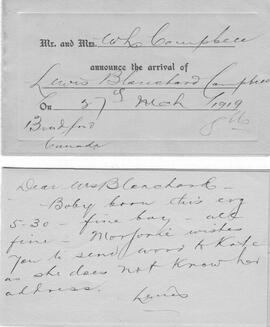 Mr. and Mrs. W L Campbell
announce the arrival of
Lewis Blanchard Campbell
On 27th Mch 1919
8 lb
Bradford
Canada
Dear Mrs Blanchard -
Baby born this evg
5-30 - fine boy - all
fine - Marjorie wishes
you to send word to Kate
as she does not know her
address.
Lewis